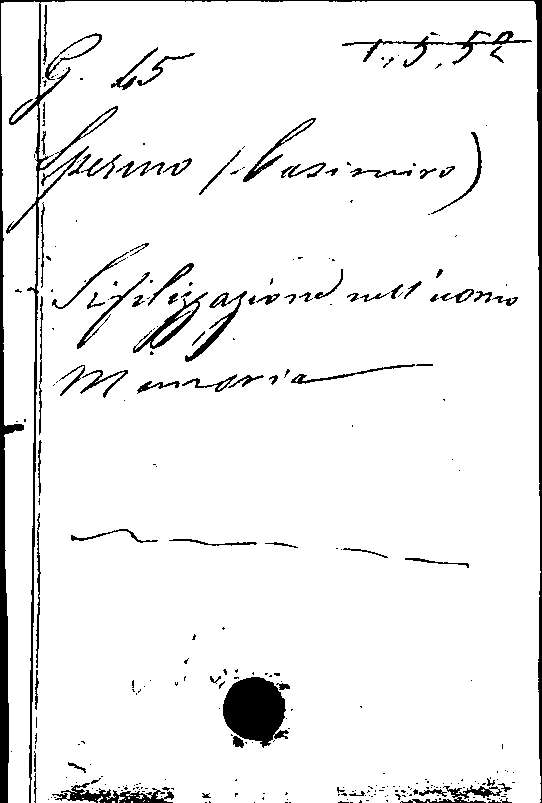 G. 45
1.5.52
Sperino (Casimiro)
Sifilizzazione nell'uomo
Memoria